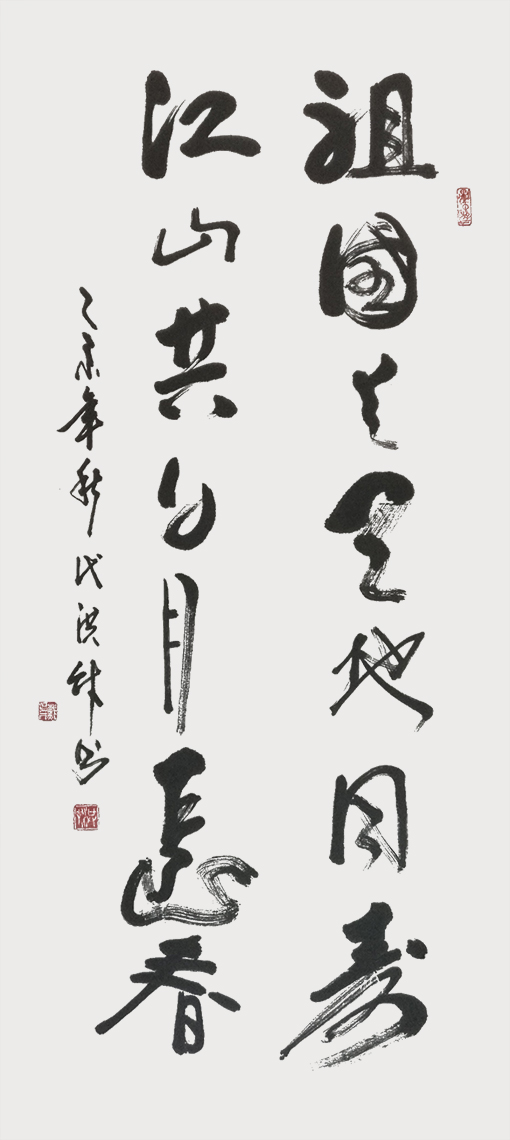 祖國与天地同寿
江山共日月長春
乙未年秋代洪书